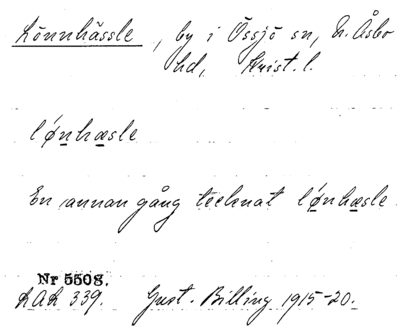 Lönnhässle, by i Össjö sn, N. Åsbo
hd, Krist. l.
lǿnhæsle
En annan gång tecknat lǿnhæsle
Nr 5508.
LAL 339. Gust. Billing 1915-20.